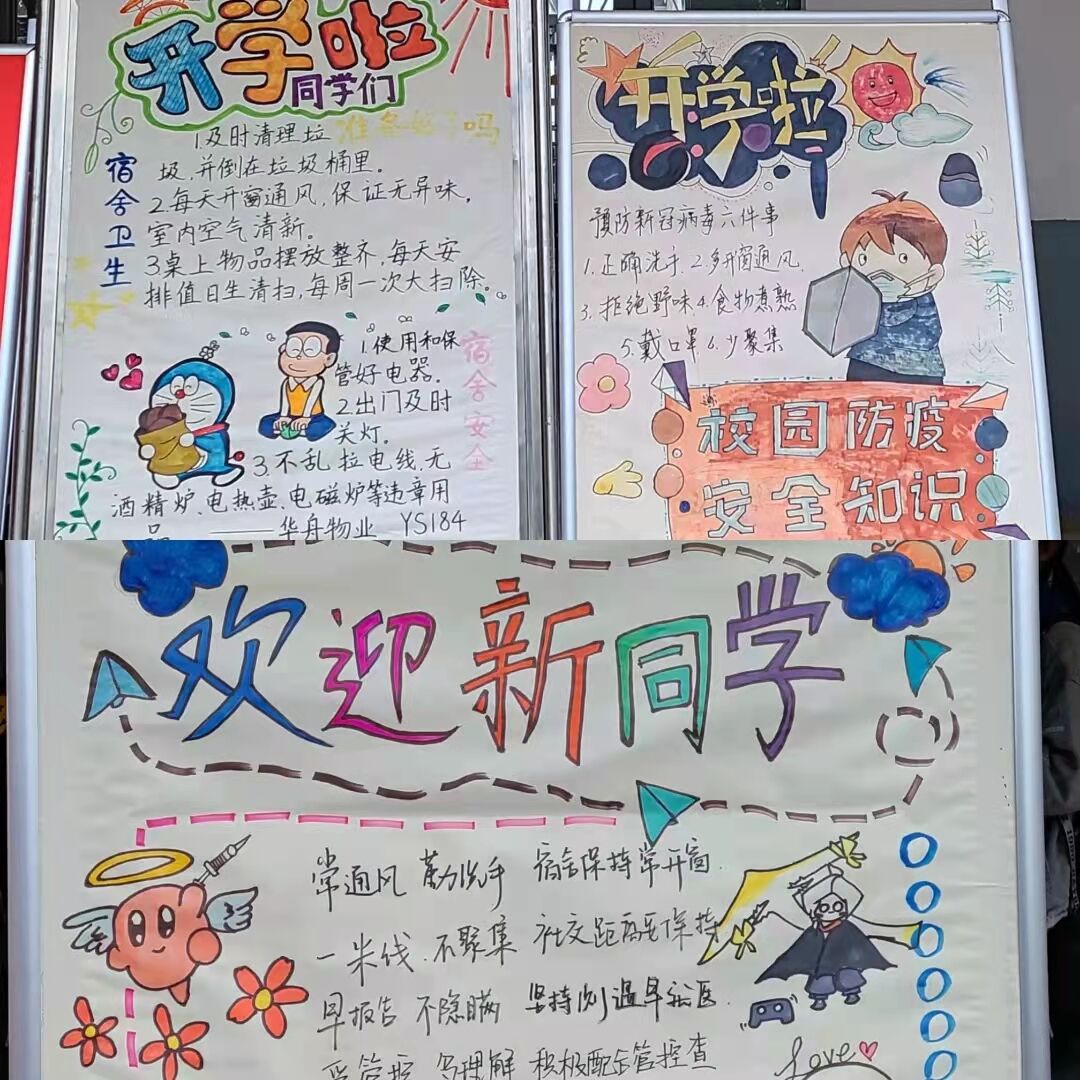 开学啦
同学们
准备好了吗
宿舍卫生
1.及时清理垃
圾,并倒在垃圾桶里。
2.每天开窗通风,保证无异味,
室内空气清新。
3.桌上物品摆放整齐,每天安
排值日生清扫,每周一次大扫除。
宿舍安全
1.使用和保
管好电器.
2.出门及时
关灯.
3.不乱拉电线,无
酒精炉、电热壶、电磁炉等违章用
品
——华舟物业 YS184
开学啦
预防新冠病毒六件事
1.正确洗手.2.多开窗通风.
3.拒绝野味4.食物煮熟
5.戴口罩6.少聚集
校园防疫
安全知识
欢迎新同学
常通风 勤洗手 宿舍保持常开窗.
一米线.不聚集 社交距离要保持
早报告 不隐瞒 坚持测温早就医.
受管控 多理解 积极配合管控查
love